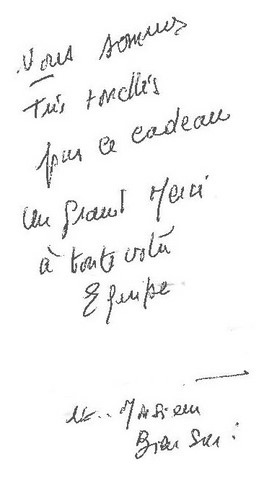 Nous sommes
Très touchés
pour ce cadeau
Un grand Merci
à toute votre
Equipe
Monsieur